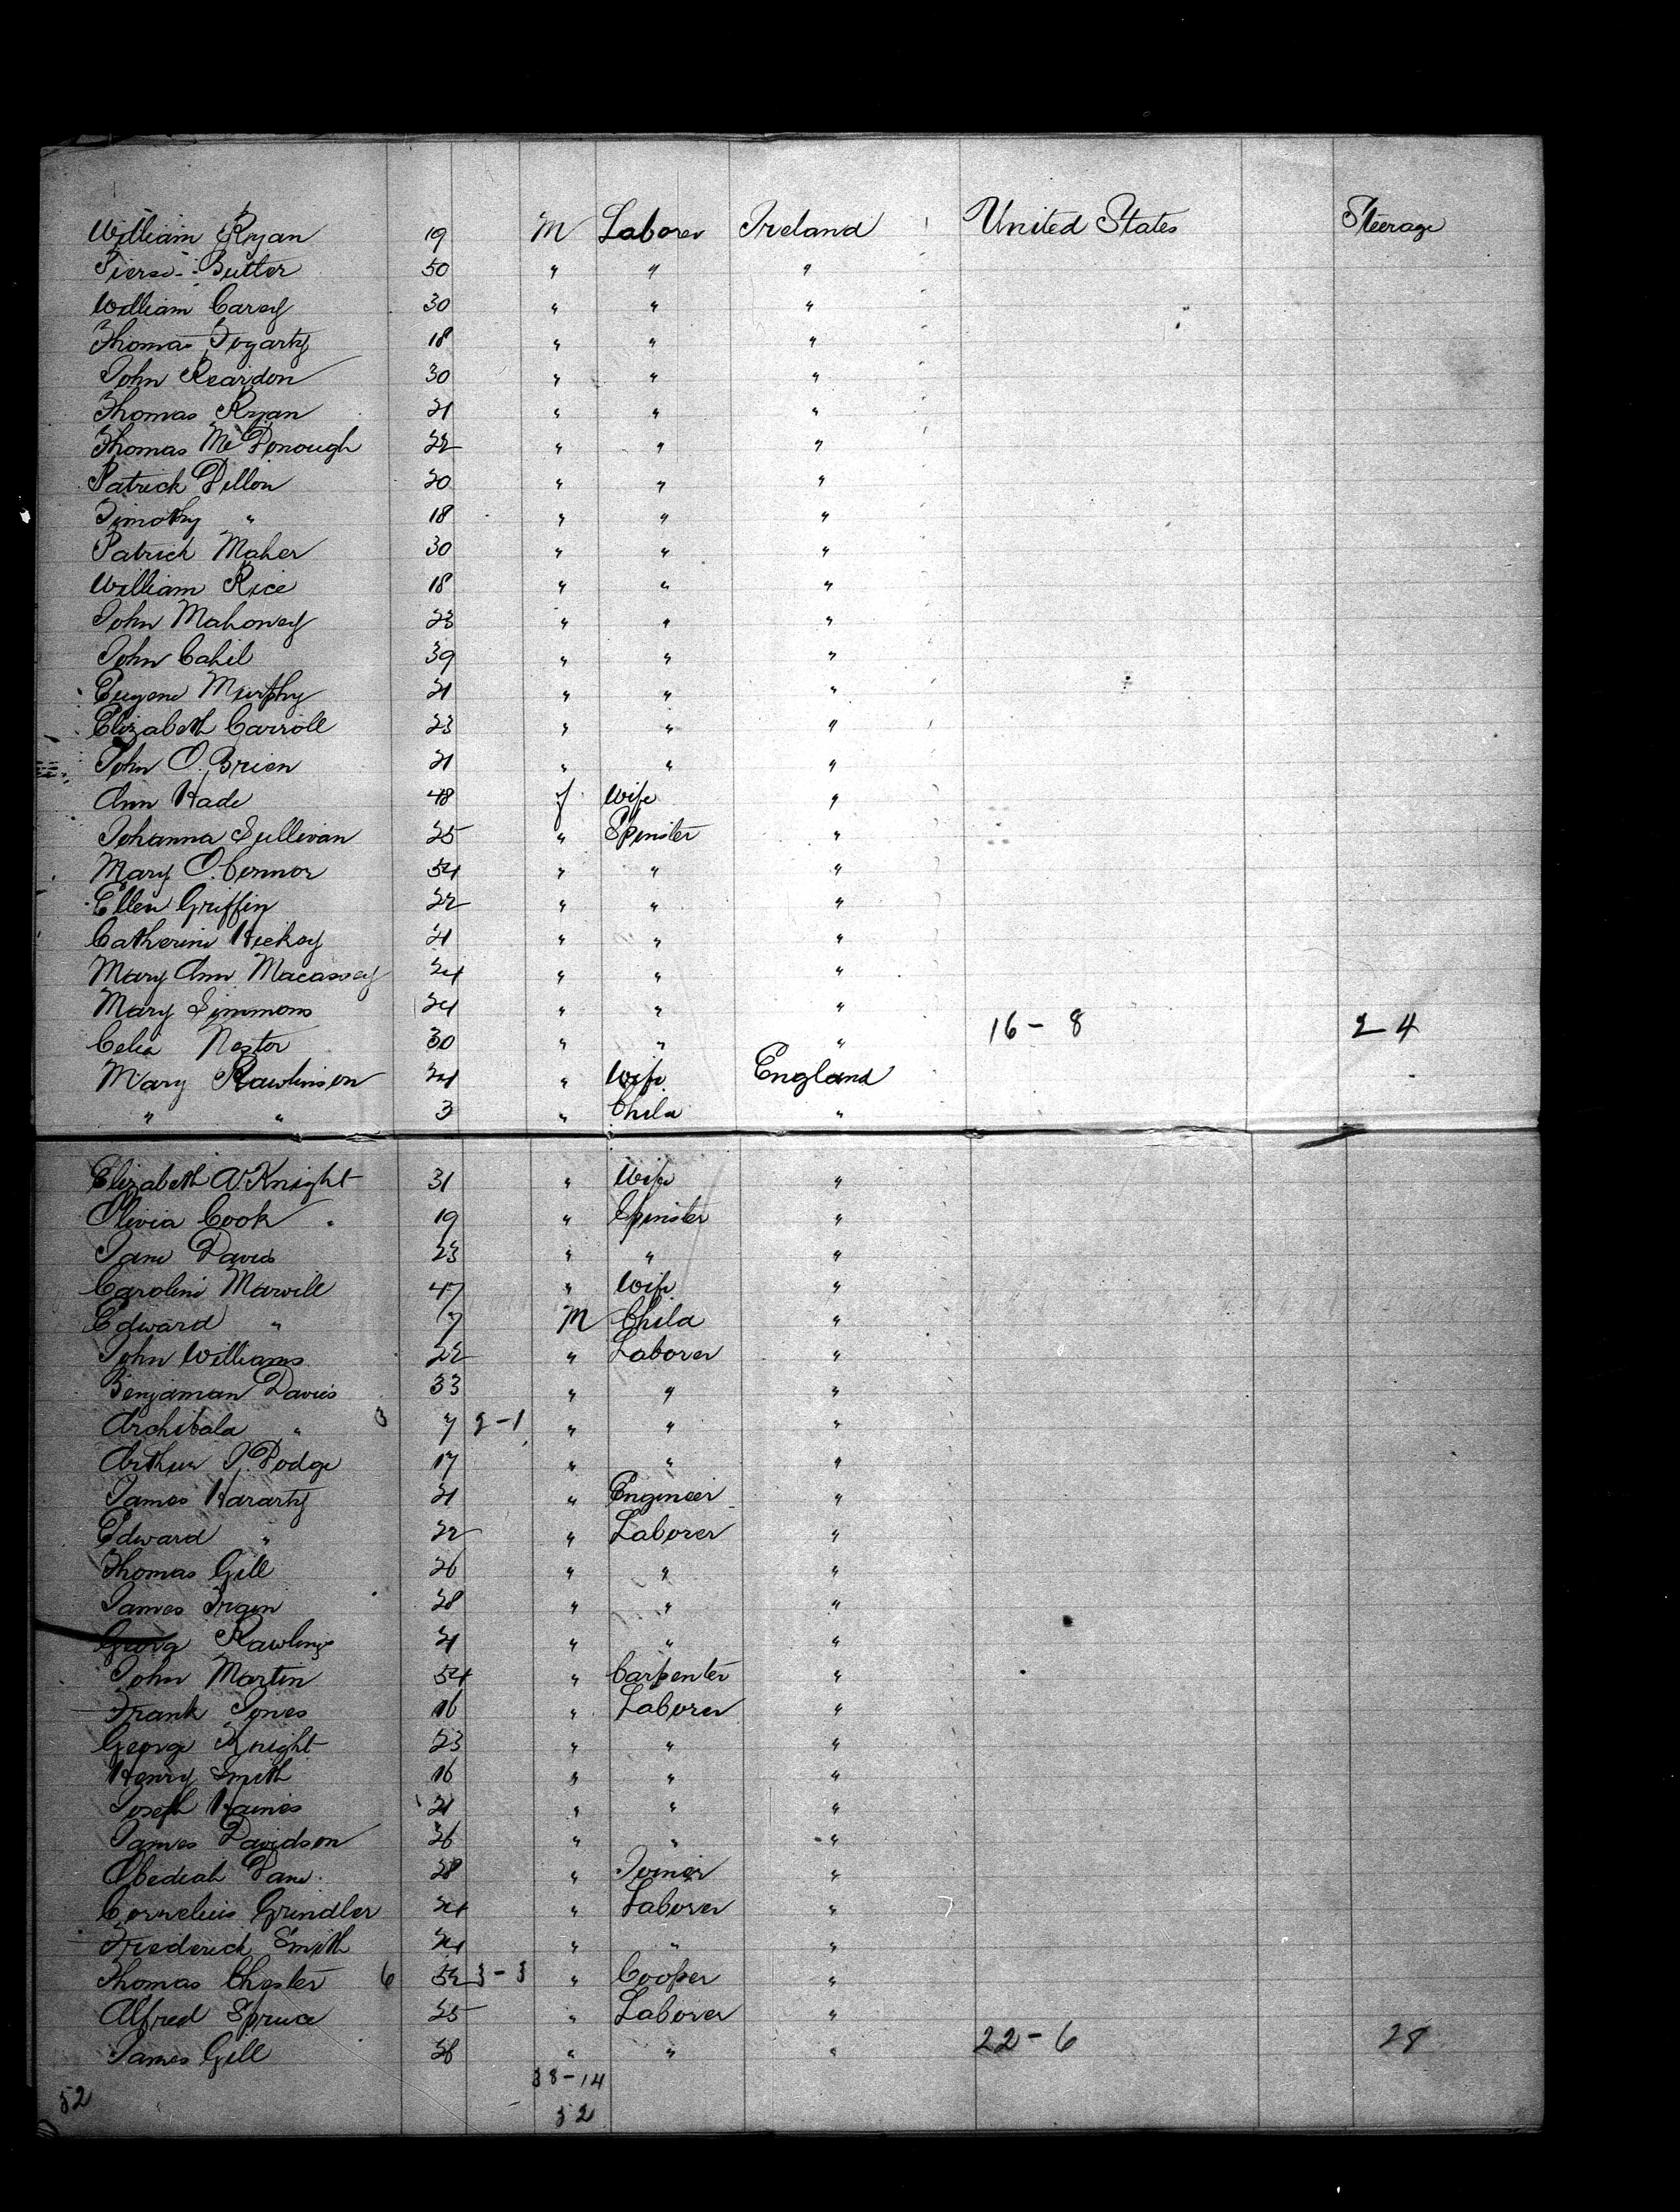 William Ryan 19 M Laborer Ireland United States Steerage
Pierse Butler 50 " " "
William Carey 30 " " "
Thomas Fogarty 18 " " "
John Reardon 30 " " "
Thomas Ryan 21 " " "
Thomas McDonough 22 " " "
Patrick Dillon 20 " " "
Timothy " 18 " " "
Patrick Maher 30 " " "
William Rice 18 " " "
John Mahoney 23 " " "
John Cahil 39 " " "
Eugene Murphy 21 " " "
Elizabeth Carroll 23 " " "
John O.Brien 21 " " "
Ann Hade 48 f Wife "
Johanna Sullivan 25 " Spinster "
Mary O.Connor 54 " " "
Ellen Griffin 22 " " "
Catherine Hickey 21 " " "
Mary Ann Macassey 24 " " "
Mary Simmons 24 " " "
Celia Nestor 30 " " " 16-8 24
Mary Rawlinson 24 " Wife England
" " 3 " Child "
Elizabeth A. Knight 31 " Wife "
Olivia Cook 19 " Spinster "
Jane Davis 23 " " "
Caroline Marvill 47 " Wife "
Edward " 7 M Child "
John Williams 22 " Laborer "
Benjaman Davies 33 " " "
Archibald " 3 7 2-1 " " "
Arthur J. Dodge 17 " " "
James Hararty 21 " Engineer "
Edward " 22 " Laborer "
Thomas Gill 26 " " "
James 28 " " "
George Rawlings 21 " " "
John Martin 54 " Carpenter "
Frank Jones 16 " Laborer "
George Knight 23 " " "
Henry Smith 16 " " "
Joseph Haines 21 " " "
James Davidson 26 " " "
Obediah Dane 28 " Joiner "
Cornelius Grindler 24 " Laborer "
Frederick Smith 24 " " "
Thomas Chester 6 52 3-3 " Cooper "
Alfred Spruce 25 " Laborer "
James Gill 28 " " " 22-6 28
38-14
52 52